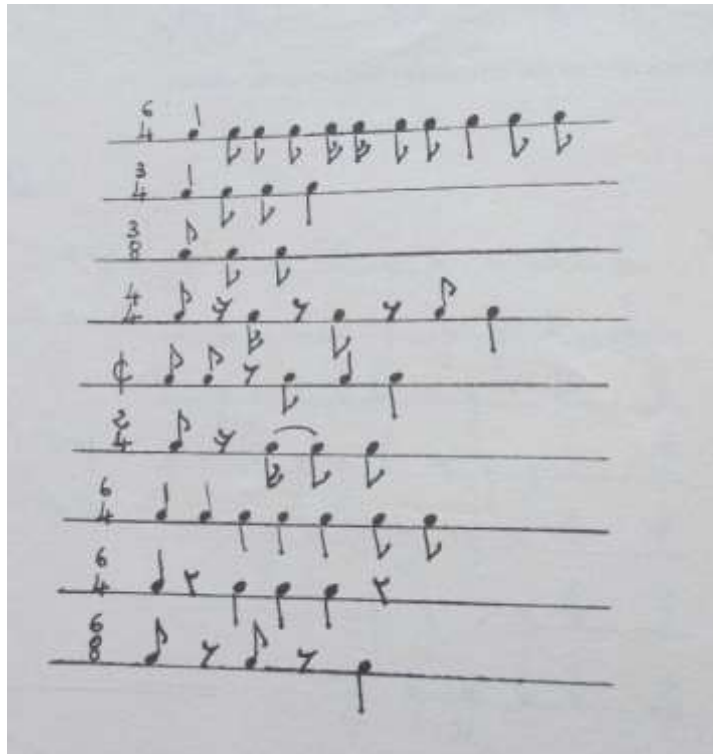 6/4
3/4
3/8
4/4
¢
2/4
6/4
6/4
6/8